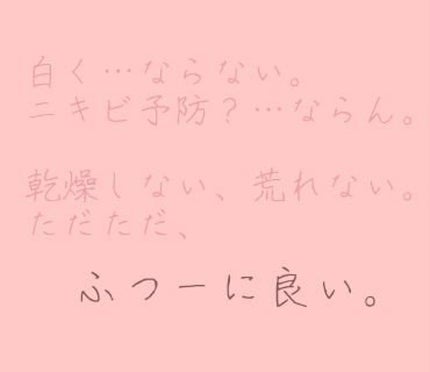 白く…ならない。
ニキビ予防？…ならん。
乾燥しない、荒れない。
ただただ、
ふつーに良い。